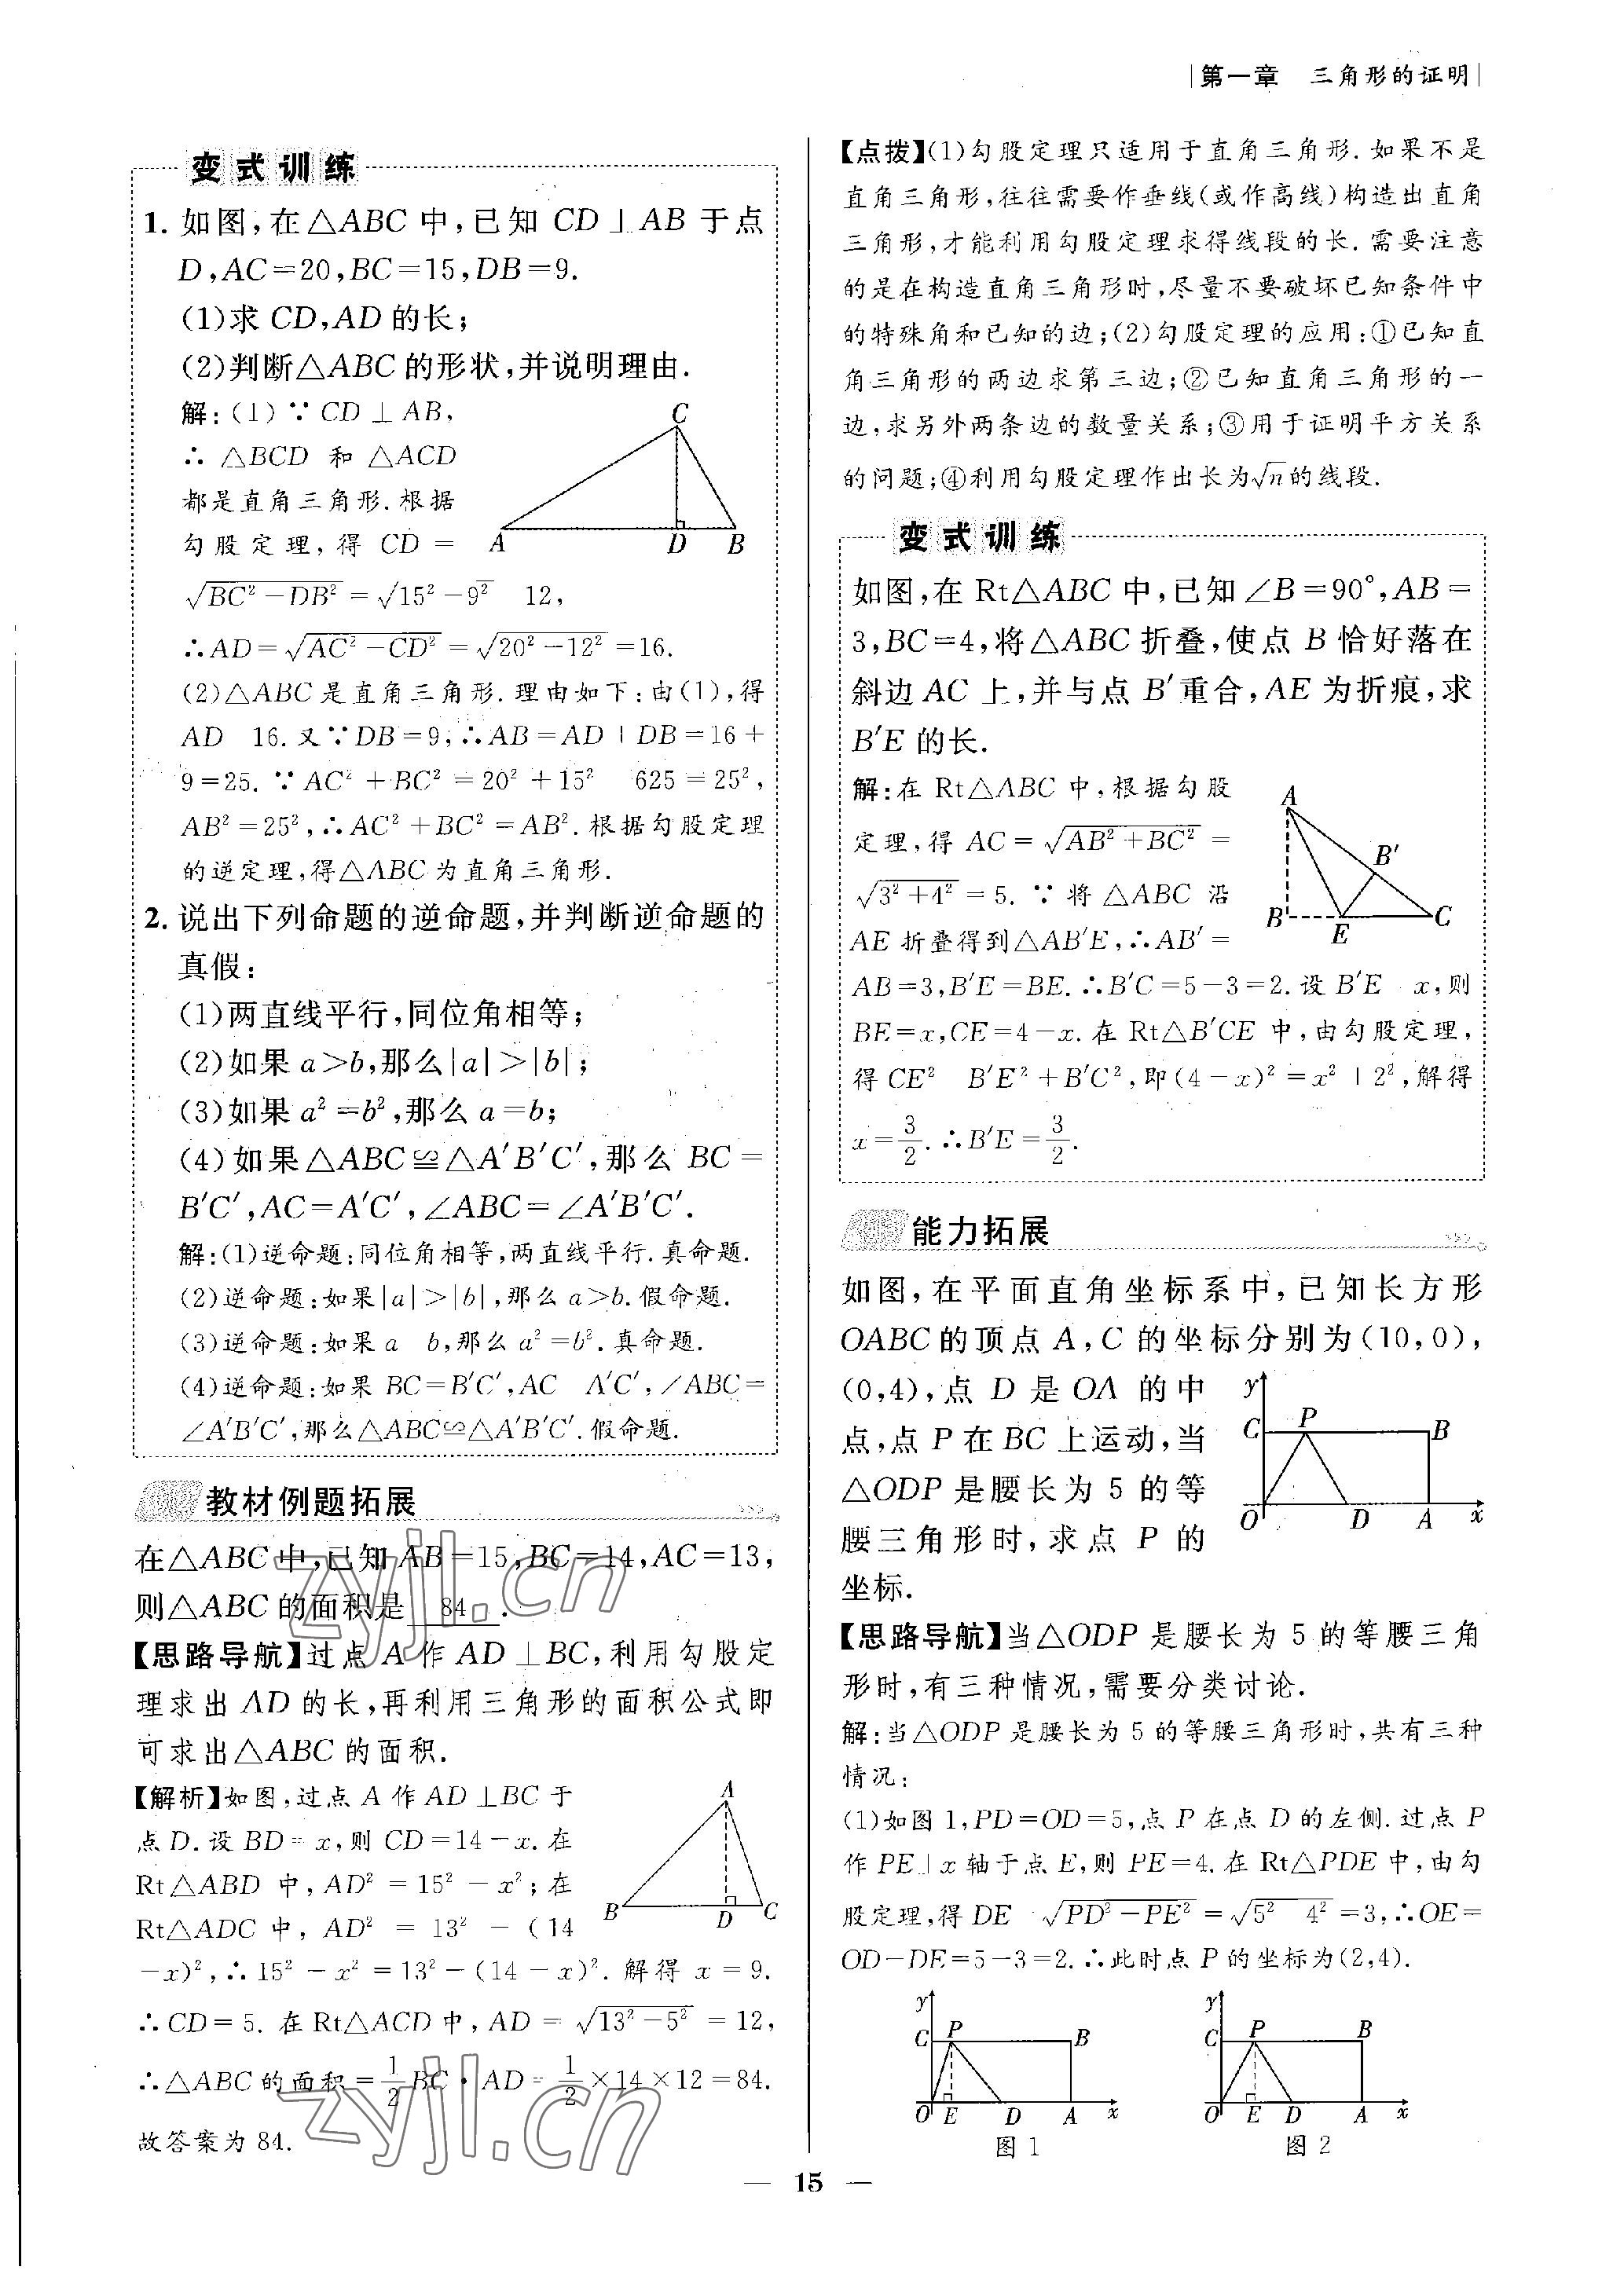 第一章 三角形的证明
变式训练
1. 如图,在△ABC 中,已知 CD⊥AB 于点
D,AC=20,BC=15,DB=9.
(1)求 CD,AD 的长;
(2)判断△ABC 的形状,并说明理由.
解:(1)∵CD⊥AB,
∴△BCD 和△ACD
都是直角三角形.根据
勾股定理,得 CD=
√BC²-DB²=√15²-9² 12,
∴AD=√AC²-CD²=√20²-12²=16.
(2)△ABC 是直角三角形.理由如下:由(1),得
AD 16.又∵DB=9,∴AB=AD+DB=16+
9=25.∵AC²+BC²=20²+15² 625=25²,
AB²=25²,∴AC²+BC²=AB².根据勾股定理
的逆定理,得△ABC 为直角三角形.
C
A D B
2. 说出下列命题的逆命题,并判断逆命题的
真假:
(1)两直线平行,同位角相等;
(2)如果 a>b,那么|a|>|b|;
(3)如果 a²=b²,那么 a=b;
(4)如果△ABC≌△A′B′C′,那么 BC=
B′C′,AC=A′C′,∠ABC=∠A′B′C′.
解:(1)逆命题:同位角相等,两直线平行.真命题.
(2)逆命题:如果|a|>|b|,那么 a>b.假命题.
(3)逆命题:如果 a b,那么 a²=b².真命题.
(4)逆命题:如果 BC=B′C′,AC A′C′,∠ABC=
∠A′B′C′,那么△ABC≌△A′B′C′.假命题.
教材例题拓展
在△ABC 中,已知 AB=15,BC=14,AC=13,
则△ABC 的面积是 84 .
【思路导航】过点 A 作 AD⊥BC,利用勾股定
理求出 AD 的长,再利用三角形的面积公式即
可求出△ABC 的面积.
【解析】如图,过点 A 作 AD⊥BC 于
点 D.设 BD=x,则 CD=14-x.在
Rt△ABD 中,AD²=15²-x²;在
Rt△ADC 中,AD²=13²-(14
-x)²,∴15²-x²=13²-(14-x)².解得 x=9.
∴CD=5.在 Rt△ACD 中,AD=√13²-5²=12,
∴△ABC 的面积=1/2BC·AD=1/2×14×12=84.
故答案为 84.
A
B D C
【点拨】(1)勾股定理只适用于直角三角形.如果不是
直角三角形,往往需要作垂线(或作高线)构造出直角
三角形,才能利用勾股定理求得线段的长.需要注意
的是在构造直角三角形时,尽量不要破坏已知条件中
的特殊角和已知的边;(2)勾股定理的应用:①已知直
角三角形的两边求第三边;②已知直角三角形的一
边,求另外两条边的数量关系;③用于证明平方关系
的问题;④利用勾股定理作出长为√n的线段.
变式训练
如图,在 Rt△ABC 中,已知∠B=90°,AB=
3,BC=4,将△ABC 折叠,使点 B 恰好落在
斜边 AC 上,并与点 B′重合,AE 为折痕,求
B′E 的长.
解:在 Rt△ABC 中,根据勾股
定理,得 AC=√AB²+BC²=
√3²+4²=5.∵将△ABC 沿
AE 折叠得到△AB′E,∴AB′=
AB=3,B′E=BE.∴B′C=5-3=2.设 B′E x,则
BE=x,CE=4-x.在 Rt△B′CE 中,由勾股定理,
得 CE² B′E²+B′C²,即(4-x)²=x²+2²,解得
x=3/2.∴B′E=3/2.
A
B′
B E C
能力拓展
如图,在平面直角坐标系中,已知长方形
OABC 的顶点 A,C 的坐标分别为(10,0),
(0,4),点 D 是 OA 的中
点,点 P 在 BC 上运动,当
△ODP 是腰长为 5 的等
腰三角形时,求点 P 的
坐标.
y
C P B
O D A x
【思路导航】当△ODP 是腰长为 5 的等腰三角
形时,有三种情况,需要分类讨论.
解:当△ODP 是腰长为 5 的等腰三角形时,共有三种
情况:
(1)如图 1,PD=OD=5,点 P 在点 D 的左侧.过点 P
作 PE⊥x 轴于点 E,则 PE=4.在 Rt△PDE 中,由勾
股定理,得 DE √PD²-PE²=√5² 4²=3,∴OE=
OD-DE=5-3=2.∴此时点 P 的坐标为(2,4).
y
C P B
O E D A x
图 1
y
C P B
O E D A x
图 2
zyjl.cn
zyjl.cn
— 15 —